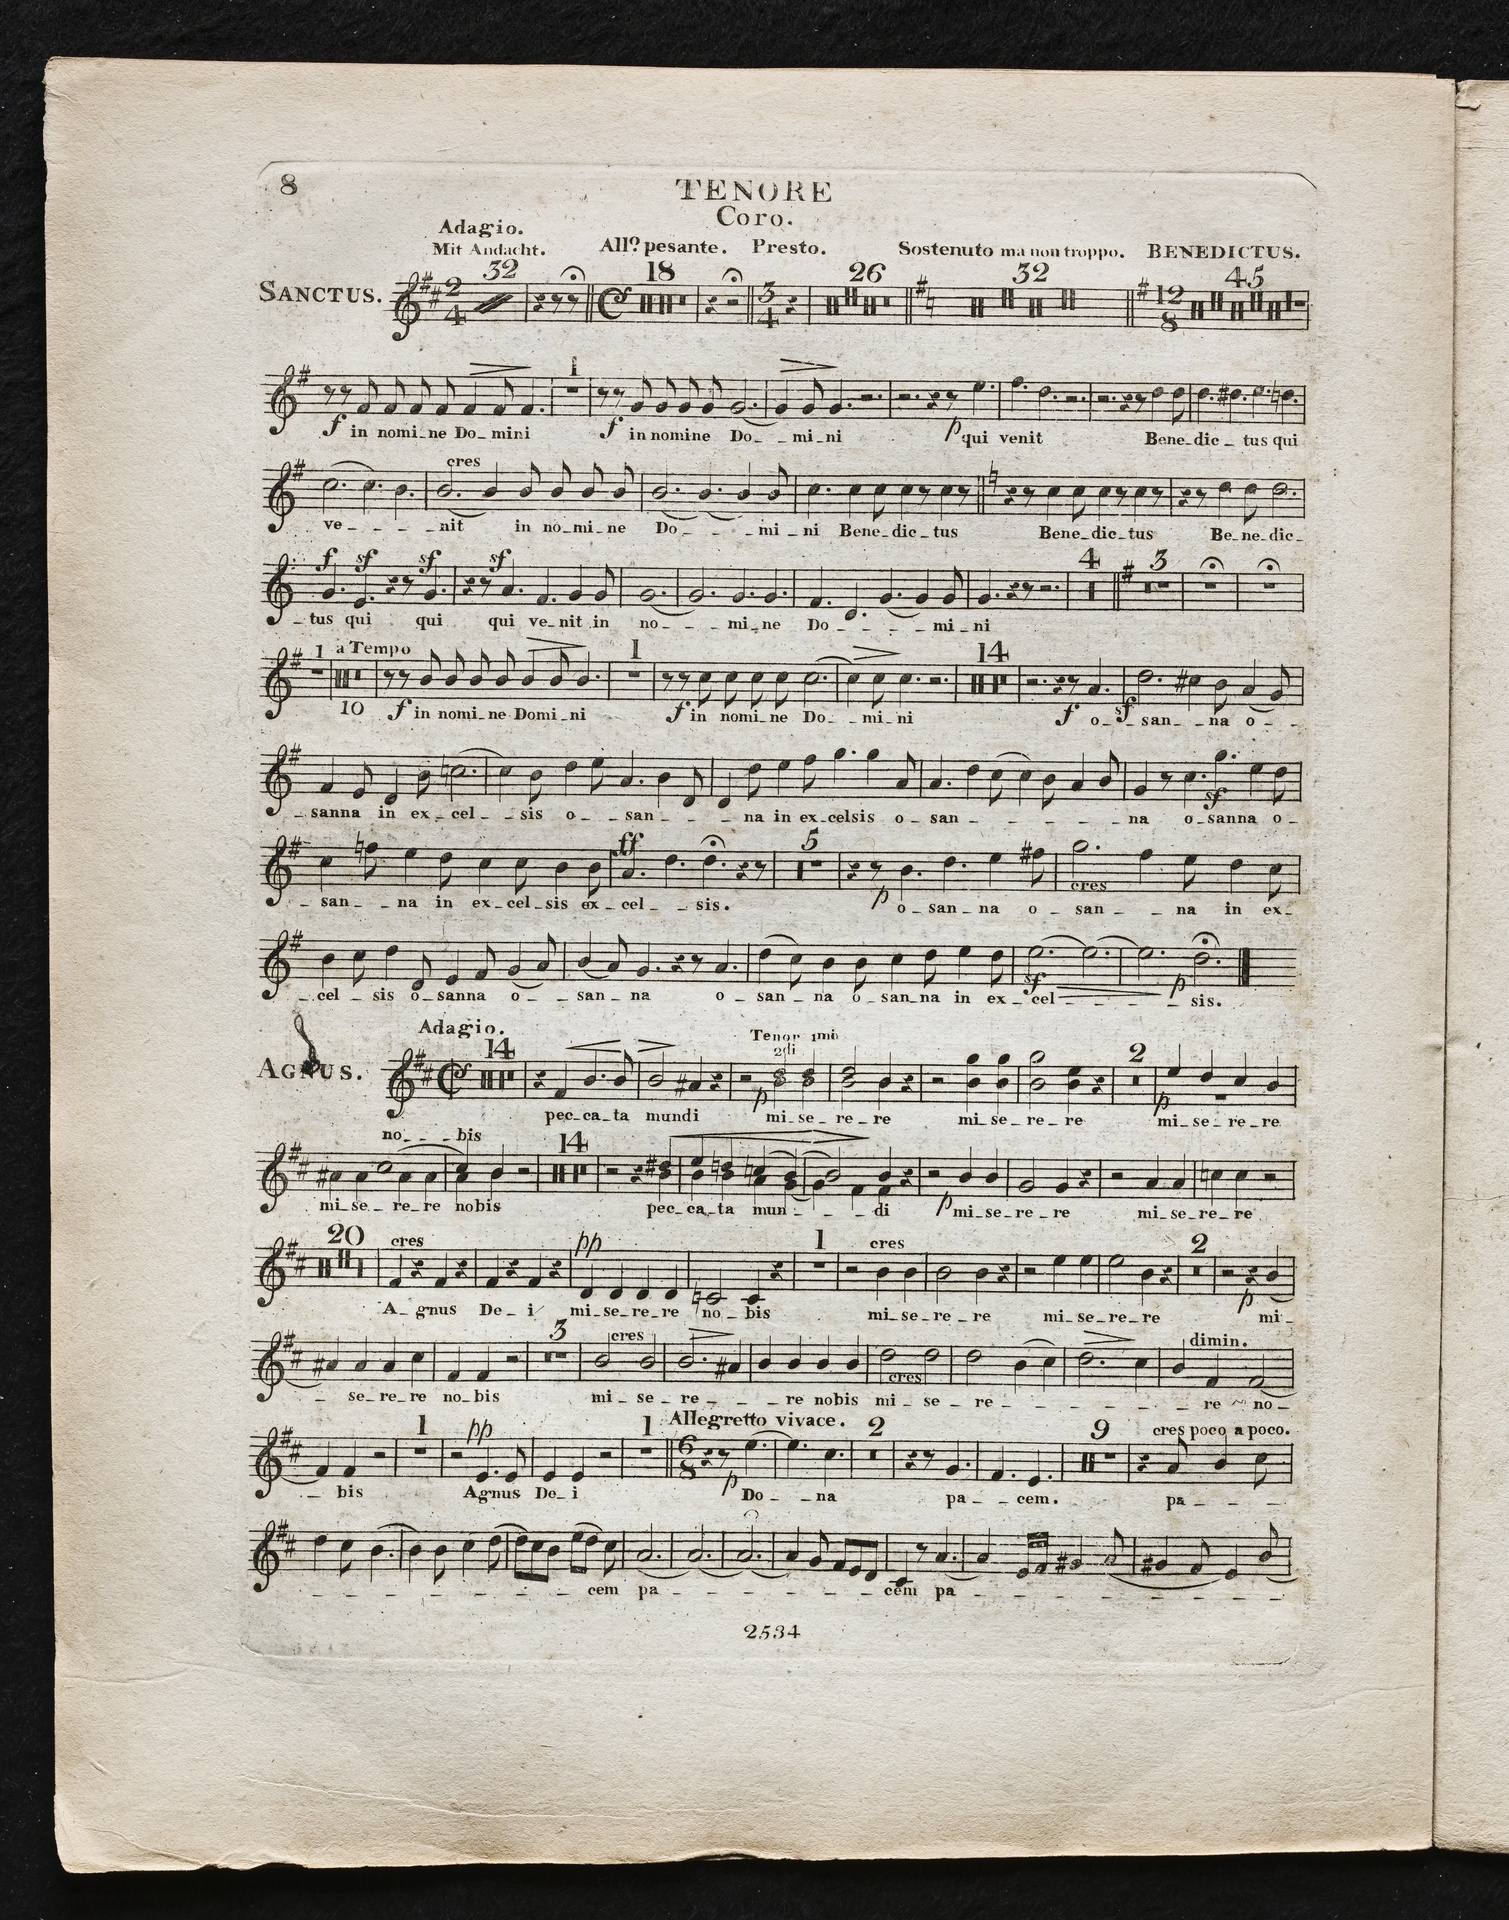 8
TENORE
Coro.
Adagio.
Mit Andacht. All? pesante. Presto. Sostenuto ma non troppo. BENEDICTUS.
32 18 26 32 45
SANCTUS. 2 4 3 4 12 8
1
f in nomi_ne Do_mini f in nomine Do_ _mi_ni p qui venit Bene_dic_ tus qui
cres
ve_ _ _ _nit in no_mi_ne Do_ _ _ _mi_ni Bene_dic_tus Bene_dic_tus Be_ne_dic_
f sf sf sf 4 3
_tus qui qui qui ve_nit in no_ _ _mi_ne Do_ _ _ _ _mi_ni
1 a Tempo 1 14
10 f in nomi_ne Domi_ni f in nomi_ne Do_ _mi_ni f o_ sf san_ _na o_ _
_sanna in ex_cel_ _sis o_ _san_ _ _na in ex_celsis o_san_ _ _ _ _na o_sanna o_
sf
ff 5
_san_ _na in ex_cel_sis ex_cel_ _sis. p o_san_na o_ san_ _ _na in ex_
cres
_cel_ sis o_sanna o_ _ _san_na o_ san_ _na o_san_na in ex_cel_ _ _ _ _sis.
sf p
Adagio.
14 Tenor 1mo
2di
2
AGNUS. pec_ca_ta mundi p mi_se_re_re mi_se_re_re p mi_se_re_re
no_ _ _bis 14
mi_se_ re_re nobis pec_ca_ta mun_ _ _ _di p mi_se_re_re mi_se_re_re
20 cres pp 1 cres 2
A_gnus De_i mi_se_re_re no_bis mi_se_re_re mi_se_re_re p mi_
3 cres cres dimin.
_ se_re_re no_bis mi_ se_ re_ _ _ re nobis mi_ se_ re_ _ _ _ _ _ _re no_
1 pp 1 Allegretto vivace. 2 9 cres poco a poco.
6 8
_ bis Agnus De_i p Do_ _na pa_ _cem. pa_ _ _ _
_ _ _ _ _ _ _ _ _ cem pa_ _ _ _ _ _ _ cem pa_ _ _ _ _ _ _ _ _
2534